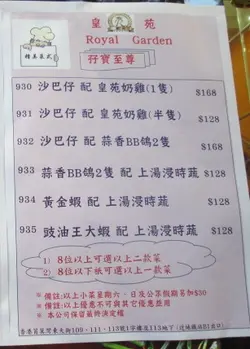 皇苑
Royal Garden
孖寶至尊
930 沙巴仔 配 皇苑奶雞(1隻) $168
931 沙巴仔 配 皇苑奶雞(半隻) $128
932 沙巴仔 配 蒜香BB鴿2隻 $168
933 蒜香BB鴿2隻 配 上湯浸時蔬 $128
934 黃金蝦 配 上湯浸時蔬 $128
935 豉油王大蝦 配 上湯浸時蔬 $128
1) 8位以上可選以上二款菜
2) 8位以下祇可選以上一款菜
※ 備註:以上小菜星期六、日及公眾假期另加$30
※ 備註:以上優惠不可與其它優惠同
※ 本公司保留最終決定權